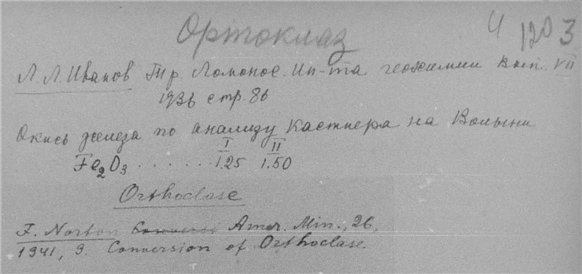 Ортоклаз
Ч 1203
Л. Л. Иванов Тр. Ломонос. Ин-та геохимии вып. VII
1936 стр. 86
Окись железа по анализу Кастнера на Волыни
I II
Fe2O3 ...... 1.25 1.50
Orthoclase
F. Norton Amer. Min., 26.
1941, 9. Conversion of Orthoclase.